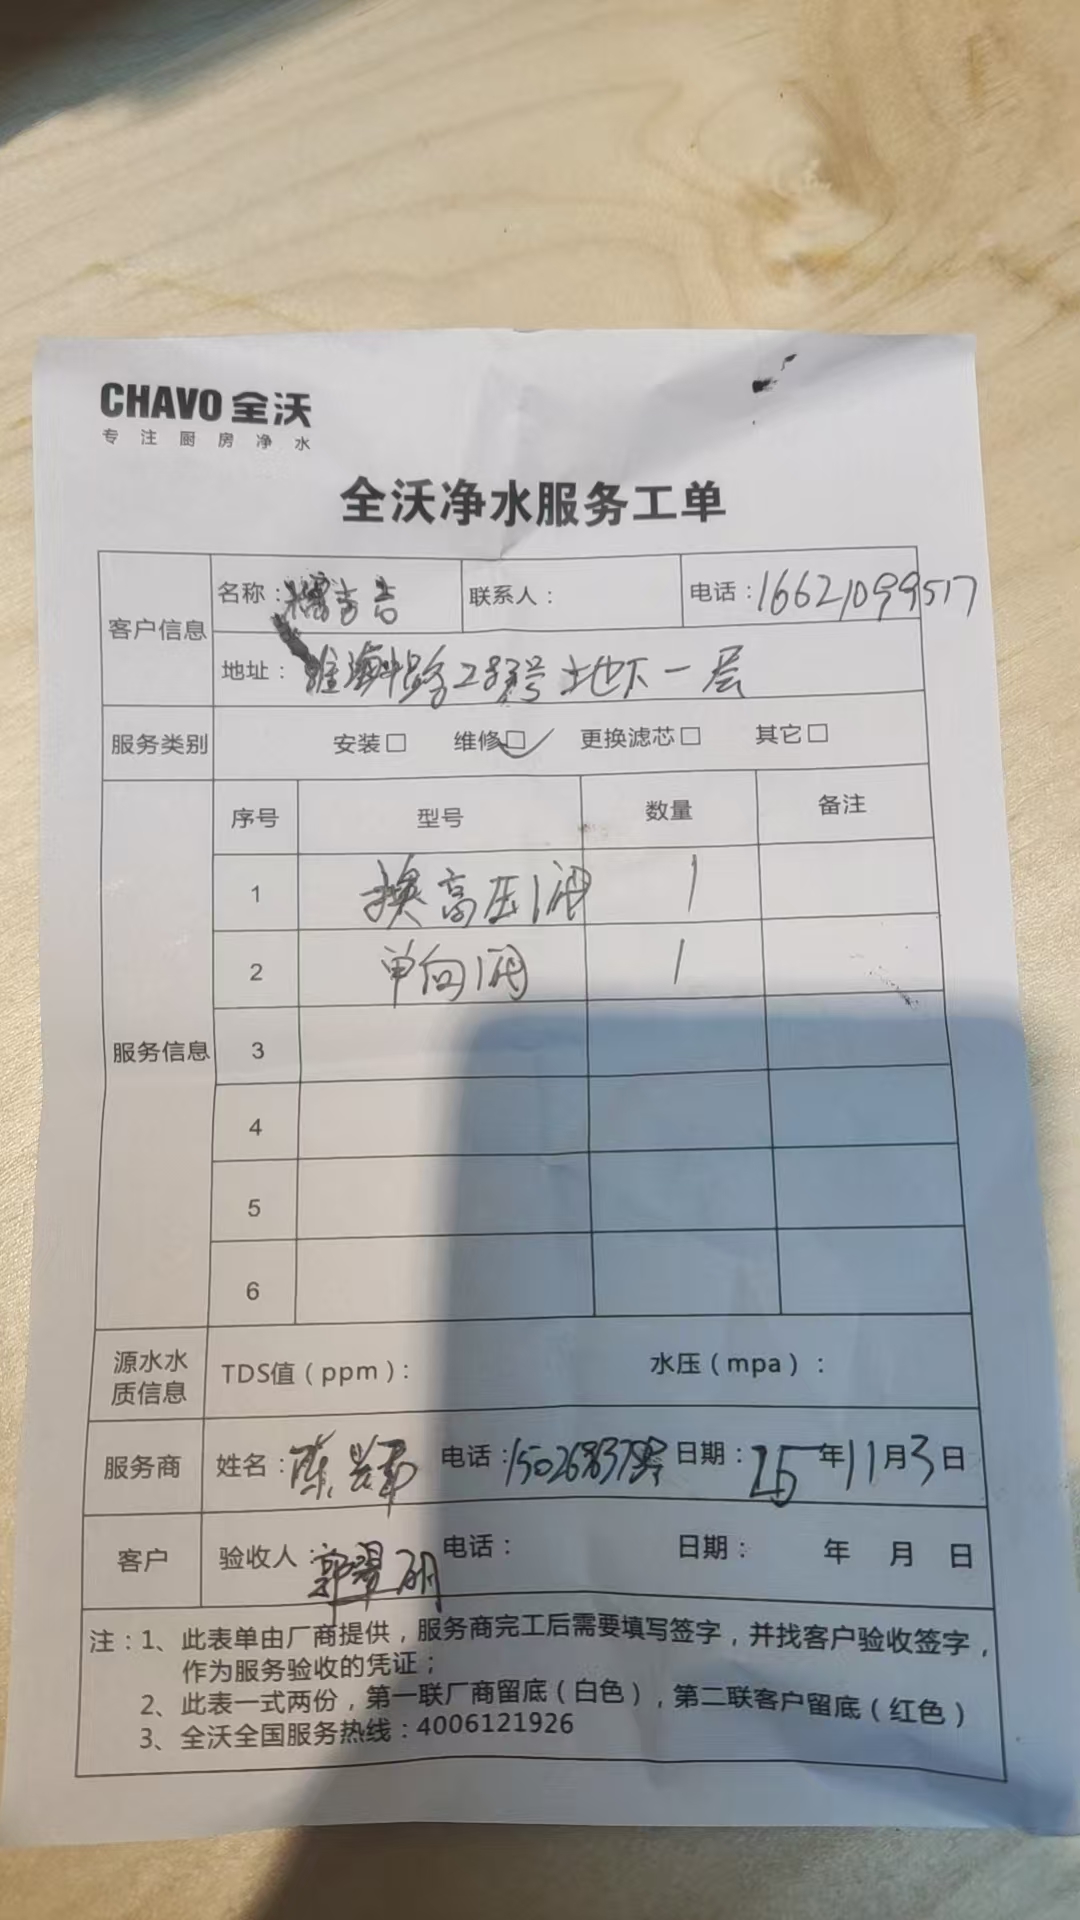 CHAVO 全沃
专注厨房净水
全沃净水服务工单
客户信息
名称： 联系人： 电话：16621099517
地址：淮海中路283号 地下一层
服务类别 安装□ 维修□ 更换滤芯□ 其它□
服务信息
序号 型号 数量 备注
1 换高压阀 1
2 单向阀 1
3
4
5
6
源水水质信息 TDS值（ppm）： 水压（mpa）：
服务商 姓名：陈 电话： 日期：25年11月3日
客户 验收人：郭 明 电话： 日期： 年 月 日
注：1、此表单由厂商提供，服务商完工后需要填写签字，并找客户验收签字，
作为服务验收的凭证；
2、此表一式两份，第一联厂商留底（白色），第二联客户留底（红色）
3、全沃全国服务热线：4006121926